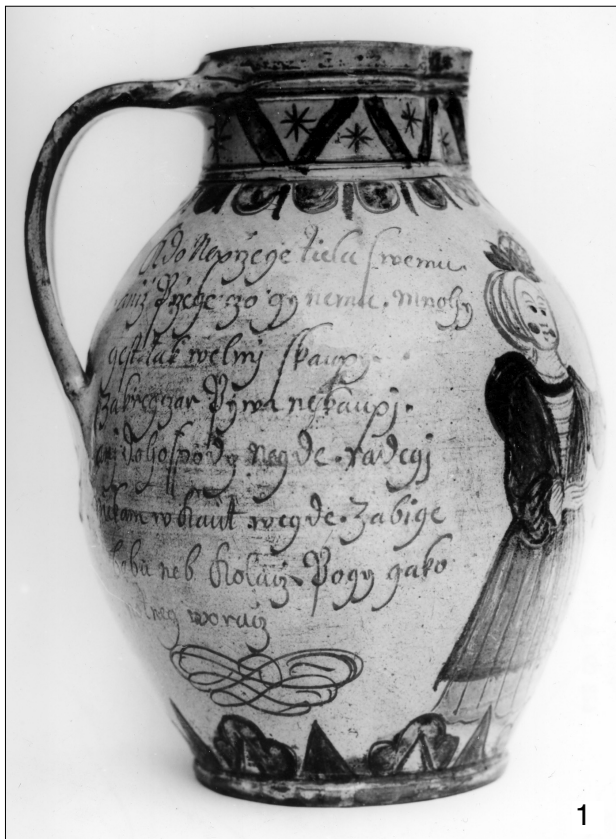 Kdo Nepržege tielu swemu
aniž Pržege czo gynemu. Mnohy
gest tak welmj skaupy.
za kregczar Pywa nekaupj.
anj do hospody negde. radegj
nekam w kaut wegde. zabige
babu neb kolacz Pogy gako
woracz
1